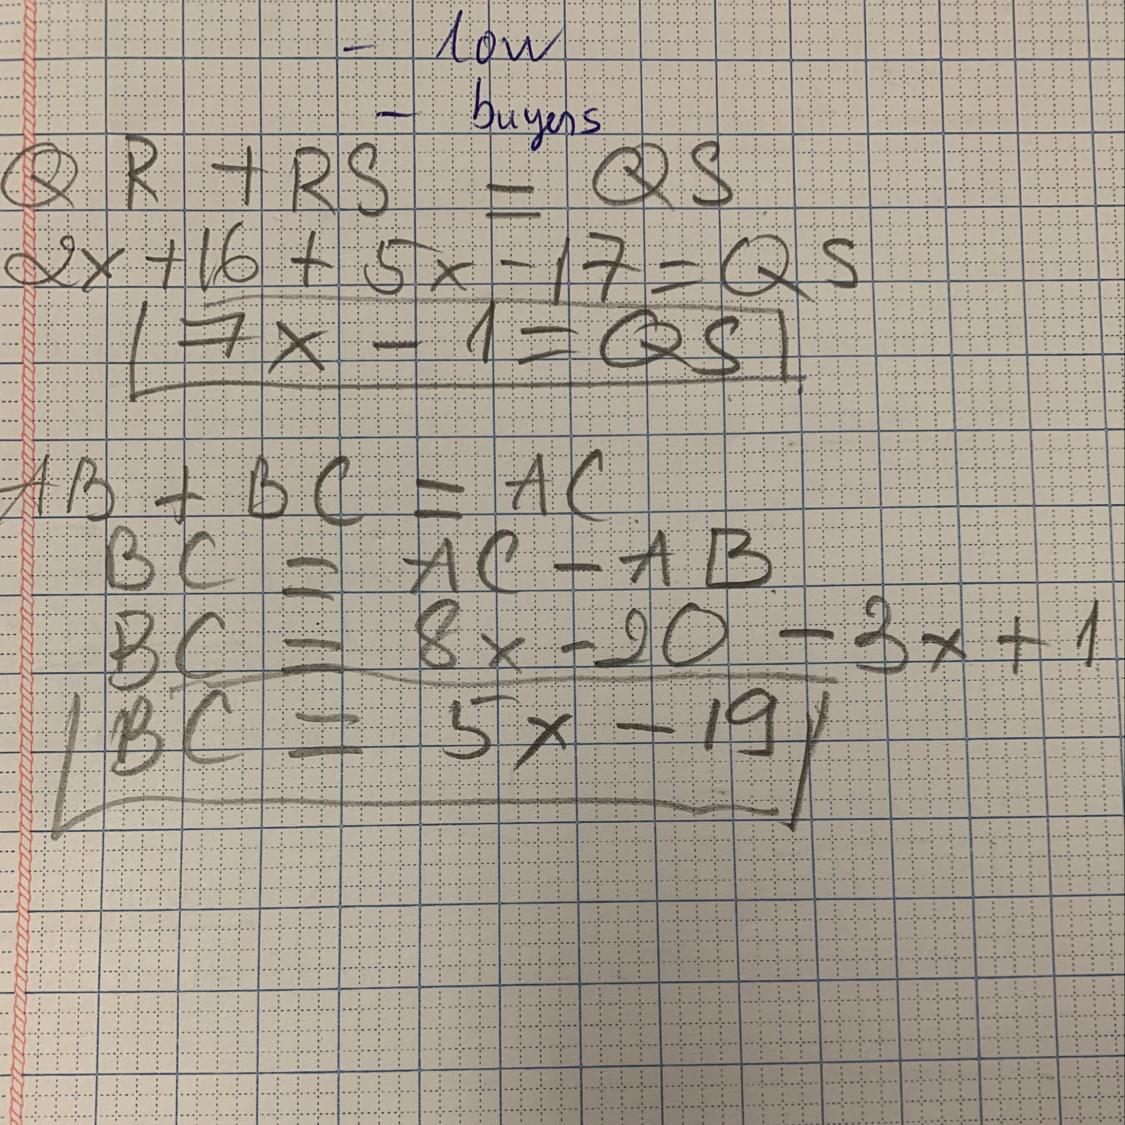 - low
- buyers
QR + RS = QS
2x + 16 + 5x - 17 = QS
7x - 1 = QS
AB + BC = AC
BC = AC - AB
BC = 8x - 20 - 3x + 1
BC = 5x - 19